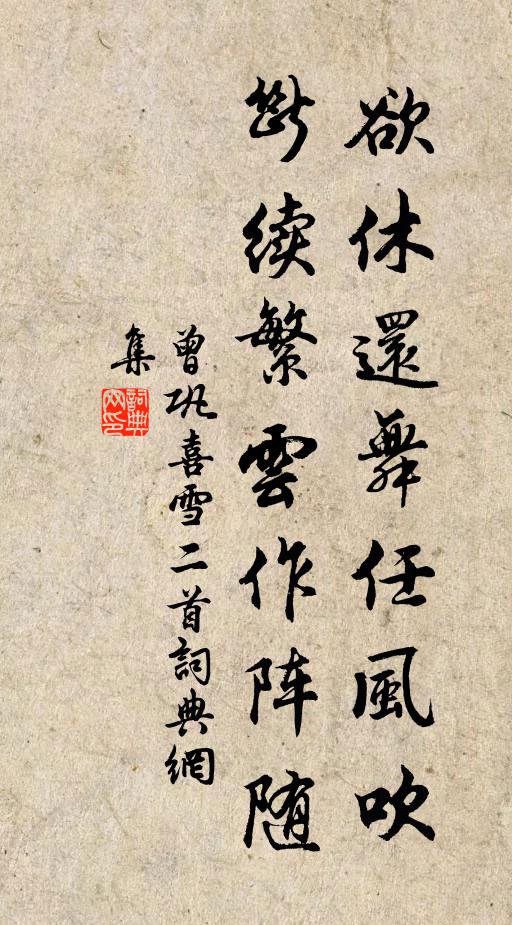 欲休還舞任風吹
斷續繁雲作阵随
曾巩喜雪二首詞典網
集
詞典
网印